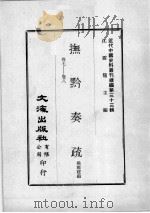 近代中國史料叢刊續編第三十三輯
沈雲龍主編
撫黔奏疏
卷七—卷八
楊雍建撰
文海出版社
有限公司
印行